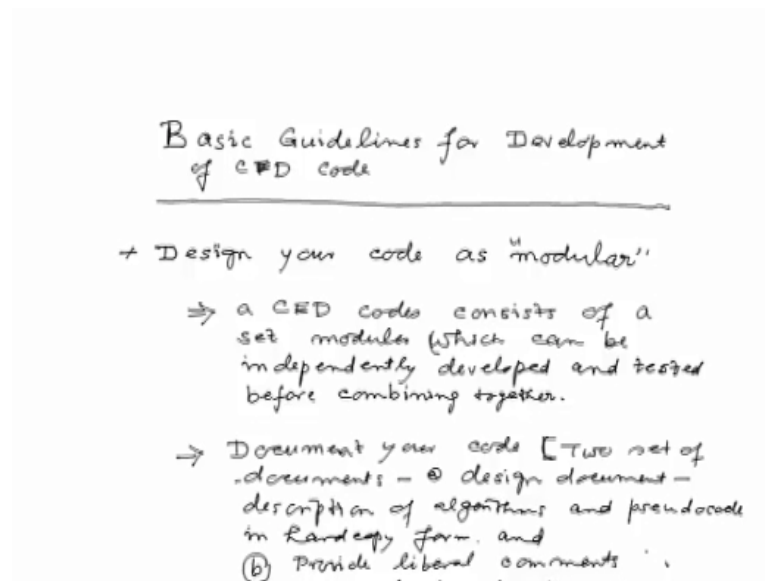 Basic Guidelines for Development
of CFD code
+ Design your code as "modular"
⇒ a CFD codes consists of a
set modules which can be
independently developed and tested
before combining together.
⇒ Document your code [Two set of
documents - ⓐ design document -
description of algorithms and pseudocode
in hardcopy form and
ⓑ Provide liberal comments